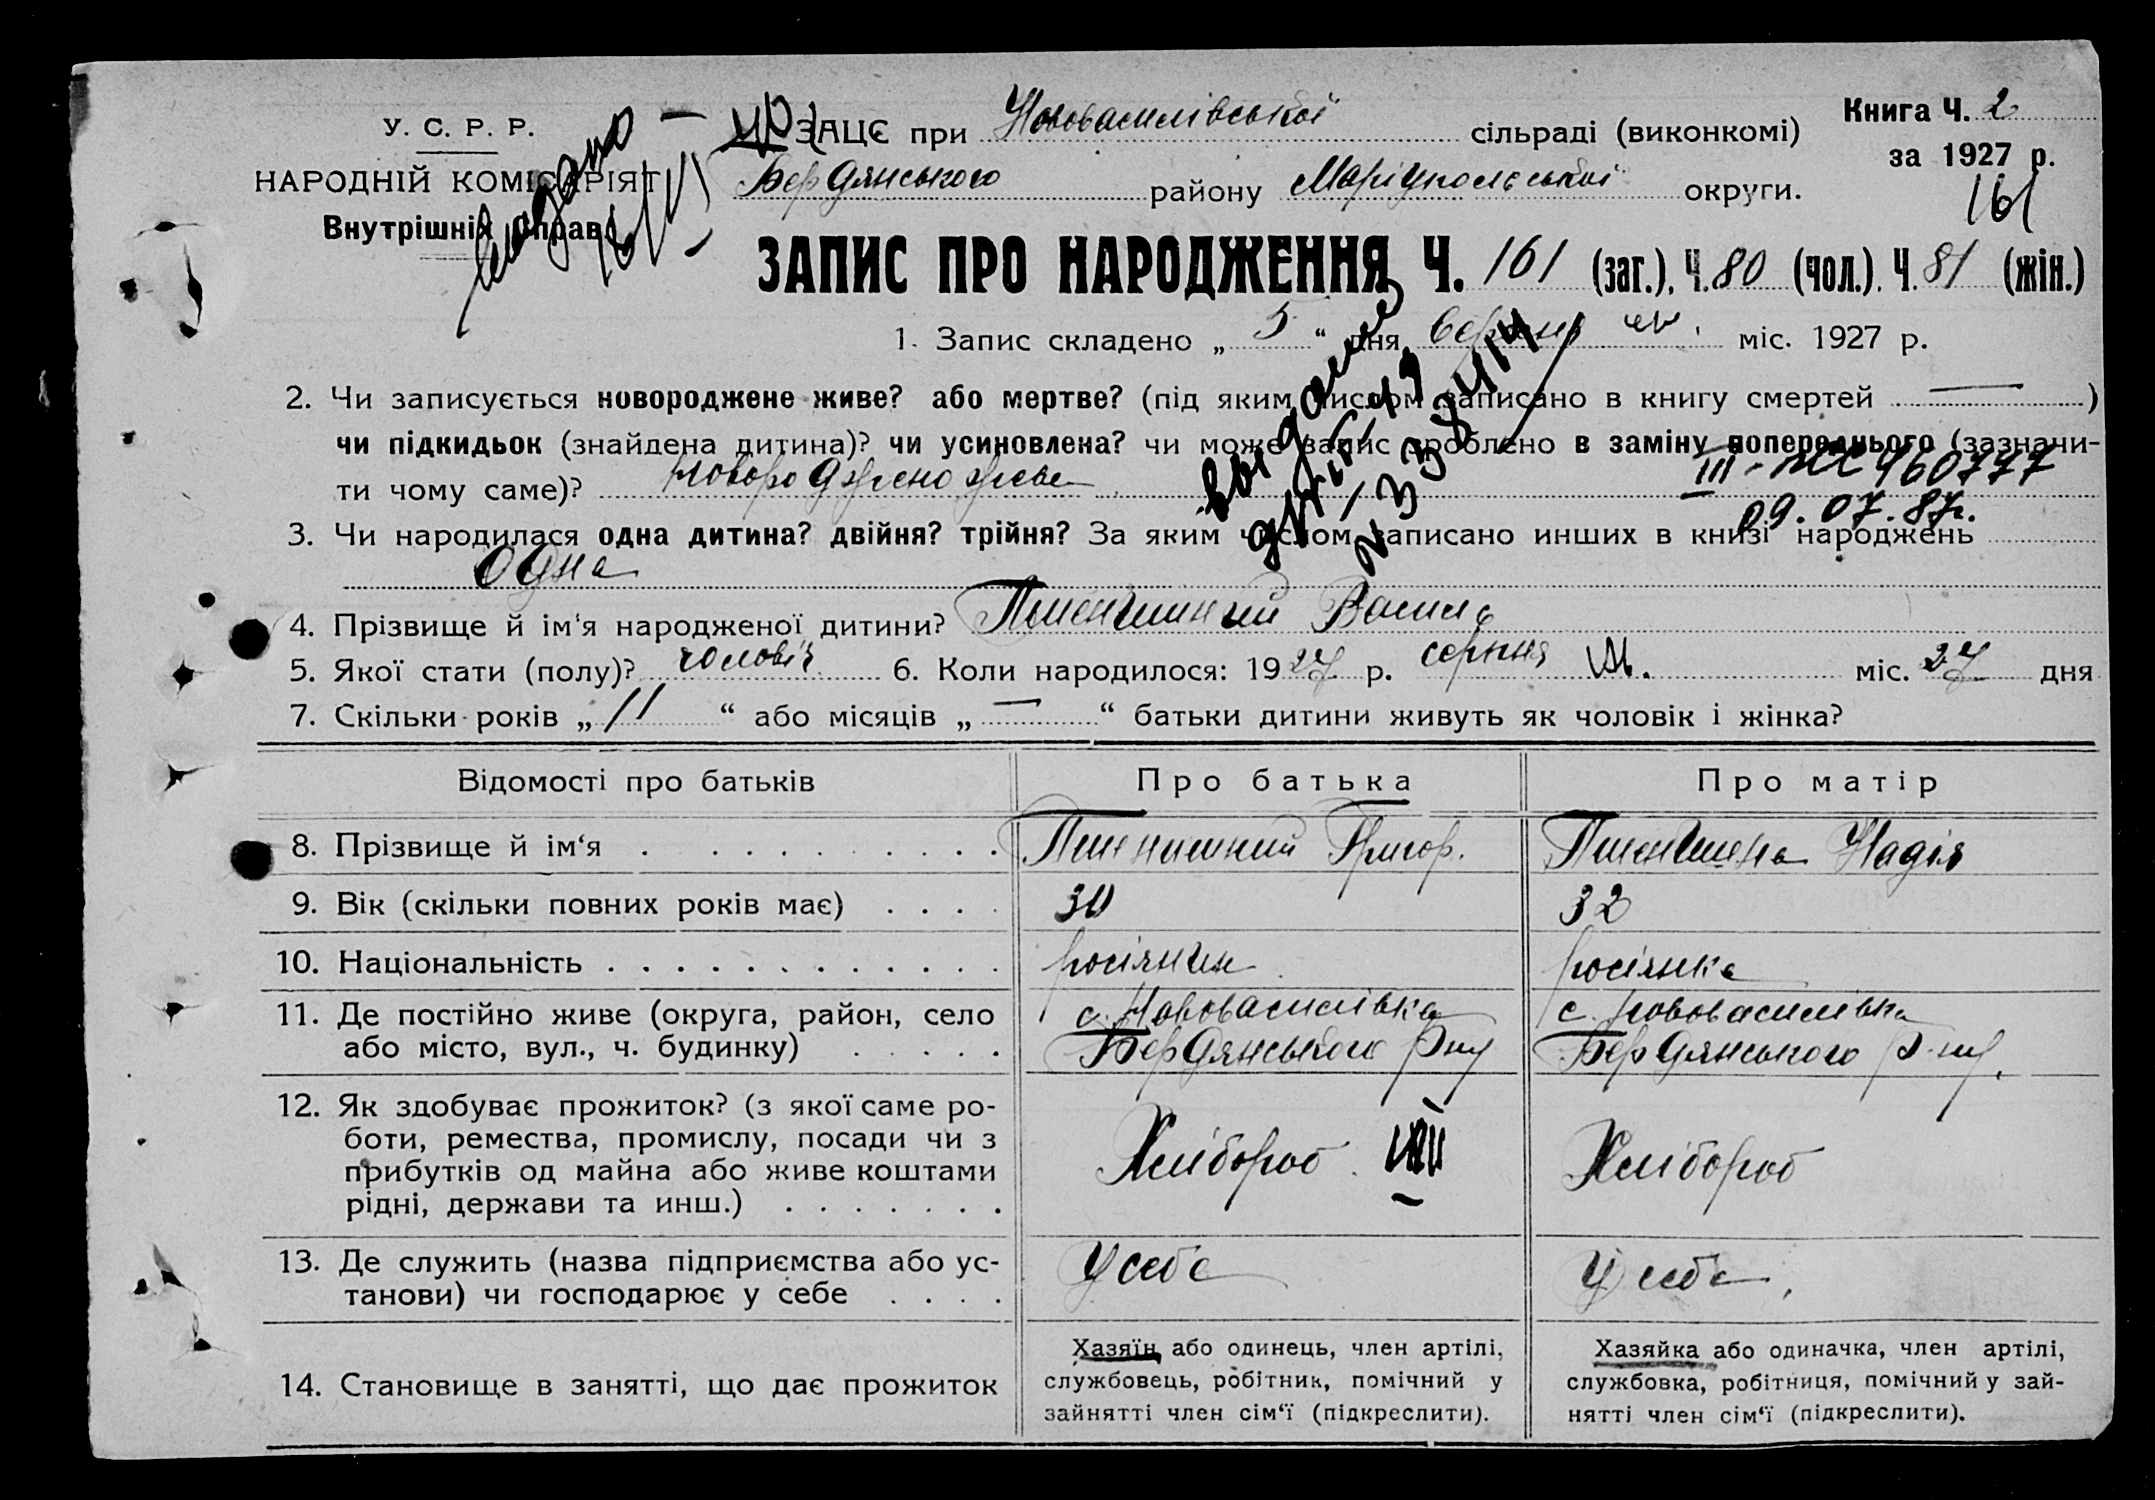 У. С. Р. Р.
НАРОДНІЙ КОМІСАРІЯТ
Внутрішніх Справ
ЗАЦС при Нововасилівської сільраді (виконкомі)
Бердянського району Маріупольської округи.
Книга Ч. 2
за 1927 р.
161
ЗАПИС ПРО НАРОДЖЕННЯ Ч. 161 (заг.), Ч. 80 (чол.). Ч. 81 (жін.)
1. Запис складено „ 5 “ дня вересня міс. 1927 р.
2. Чи записується новороджене живе? або мертве? (під яким числом записано в книгу смертей — )
чи підкидьок (знайдена дитина)? чи усиновлена? чи може запис зроблено в заміну попереднього (зазначи-
ти чому саме)? новороджено живе
III-ЖС 460777
09.07.87г.
3. Чи народилася одна дитина? двійня? трійня? За яким числом записано инших в книзі народжень
одна
4. Прізвище й ім'я народженої дитини? Пшенишний Василь
5. Якої стати (полу)? чоловіч 6. Коли народилося: 1927 р. серпня міс. 27 дня
7. Скільки років „ 11 “ або місяців „ — “ батьки дитини живуть як чоловік і жінка?
Відомості про батьків
Про батька
Про матір
8. Прізвище й ім‘я
Пшенишний Григор.
Пшенишна Надія
9. Вік (скільки повних років має)
30
32
10. Національність
росіянин
росіянка
11. Де постійно живе (округа, район, село
або місто, вул., ч. будинку)
с. Нововасилівка
Бердянського Рну
с. Нововасилівка
Бердянського Р-ну
12. Як здобуває прожиток? (з якої саме ро-
боти, ремества, промислу, посади чи з
прибутків од майна або живе коштами
рідні, держави та инш.)
Хлібороб VIII
Хлібороб
13. Де служить (назва підприємства або ус-
танови) чи господарює у себе
У себе
У себе
14. Становище в занятті, що дає прожиток
Хазяїн або одинець, член артілі,
службовець, робітник, помічний у
зайнятті член сім‘ї (підкреслити).
Хазяйка або одиначка, член артілі,
службовка, робітниця, помічний у зай-
нятті член сім‘ї (підкреслити).